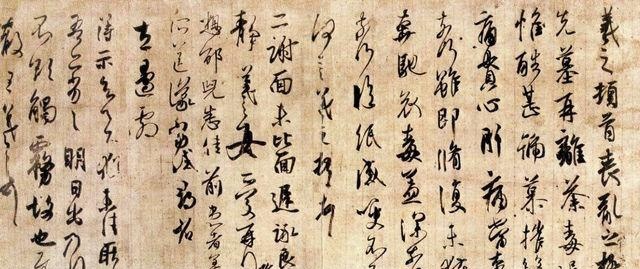 羲之頓首喪亂之極
先墓再離荼毒
惟酷甚號慕摧
痛貫心肝痛當
奈何雖即脩復未
奔馳哀毒益深奈
奈何臨紙感哽不
何言羲之頓首
二謝面未比面遲詠良
靜羲之女愛再拜
想邵兒悉佳前患者善
所送議當試尋省
左邊劇
得示知足下猶未佳耿
吾亦劣劣明日出乃
不欲觸霧故也
散王羲之頓